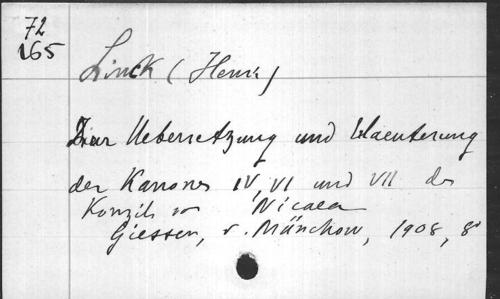 72
165
Linck (Henr.)
Zur Uebersetzung und Elaeuterung
der Kanones IV, VI und VII des
Konzils von Nicaea
Giessen, v. Münchow, 1908, 8°